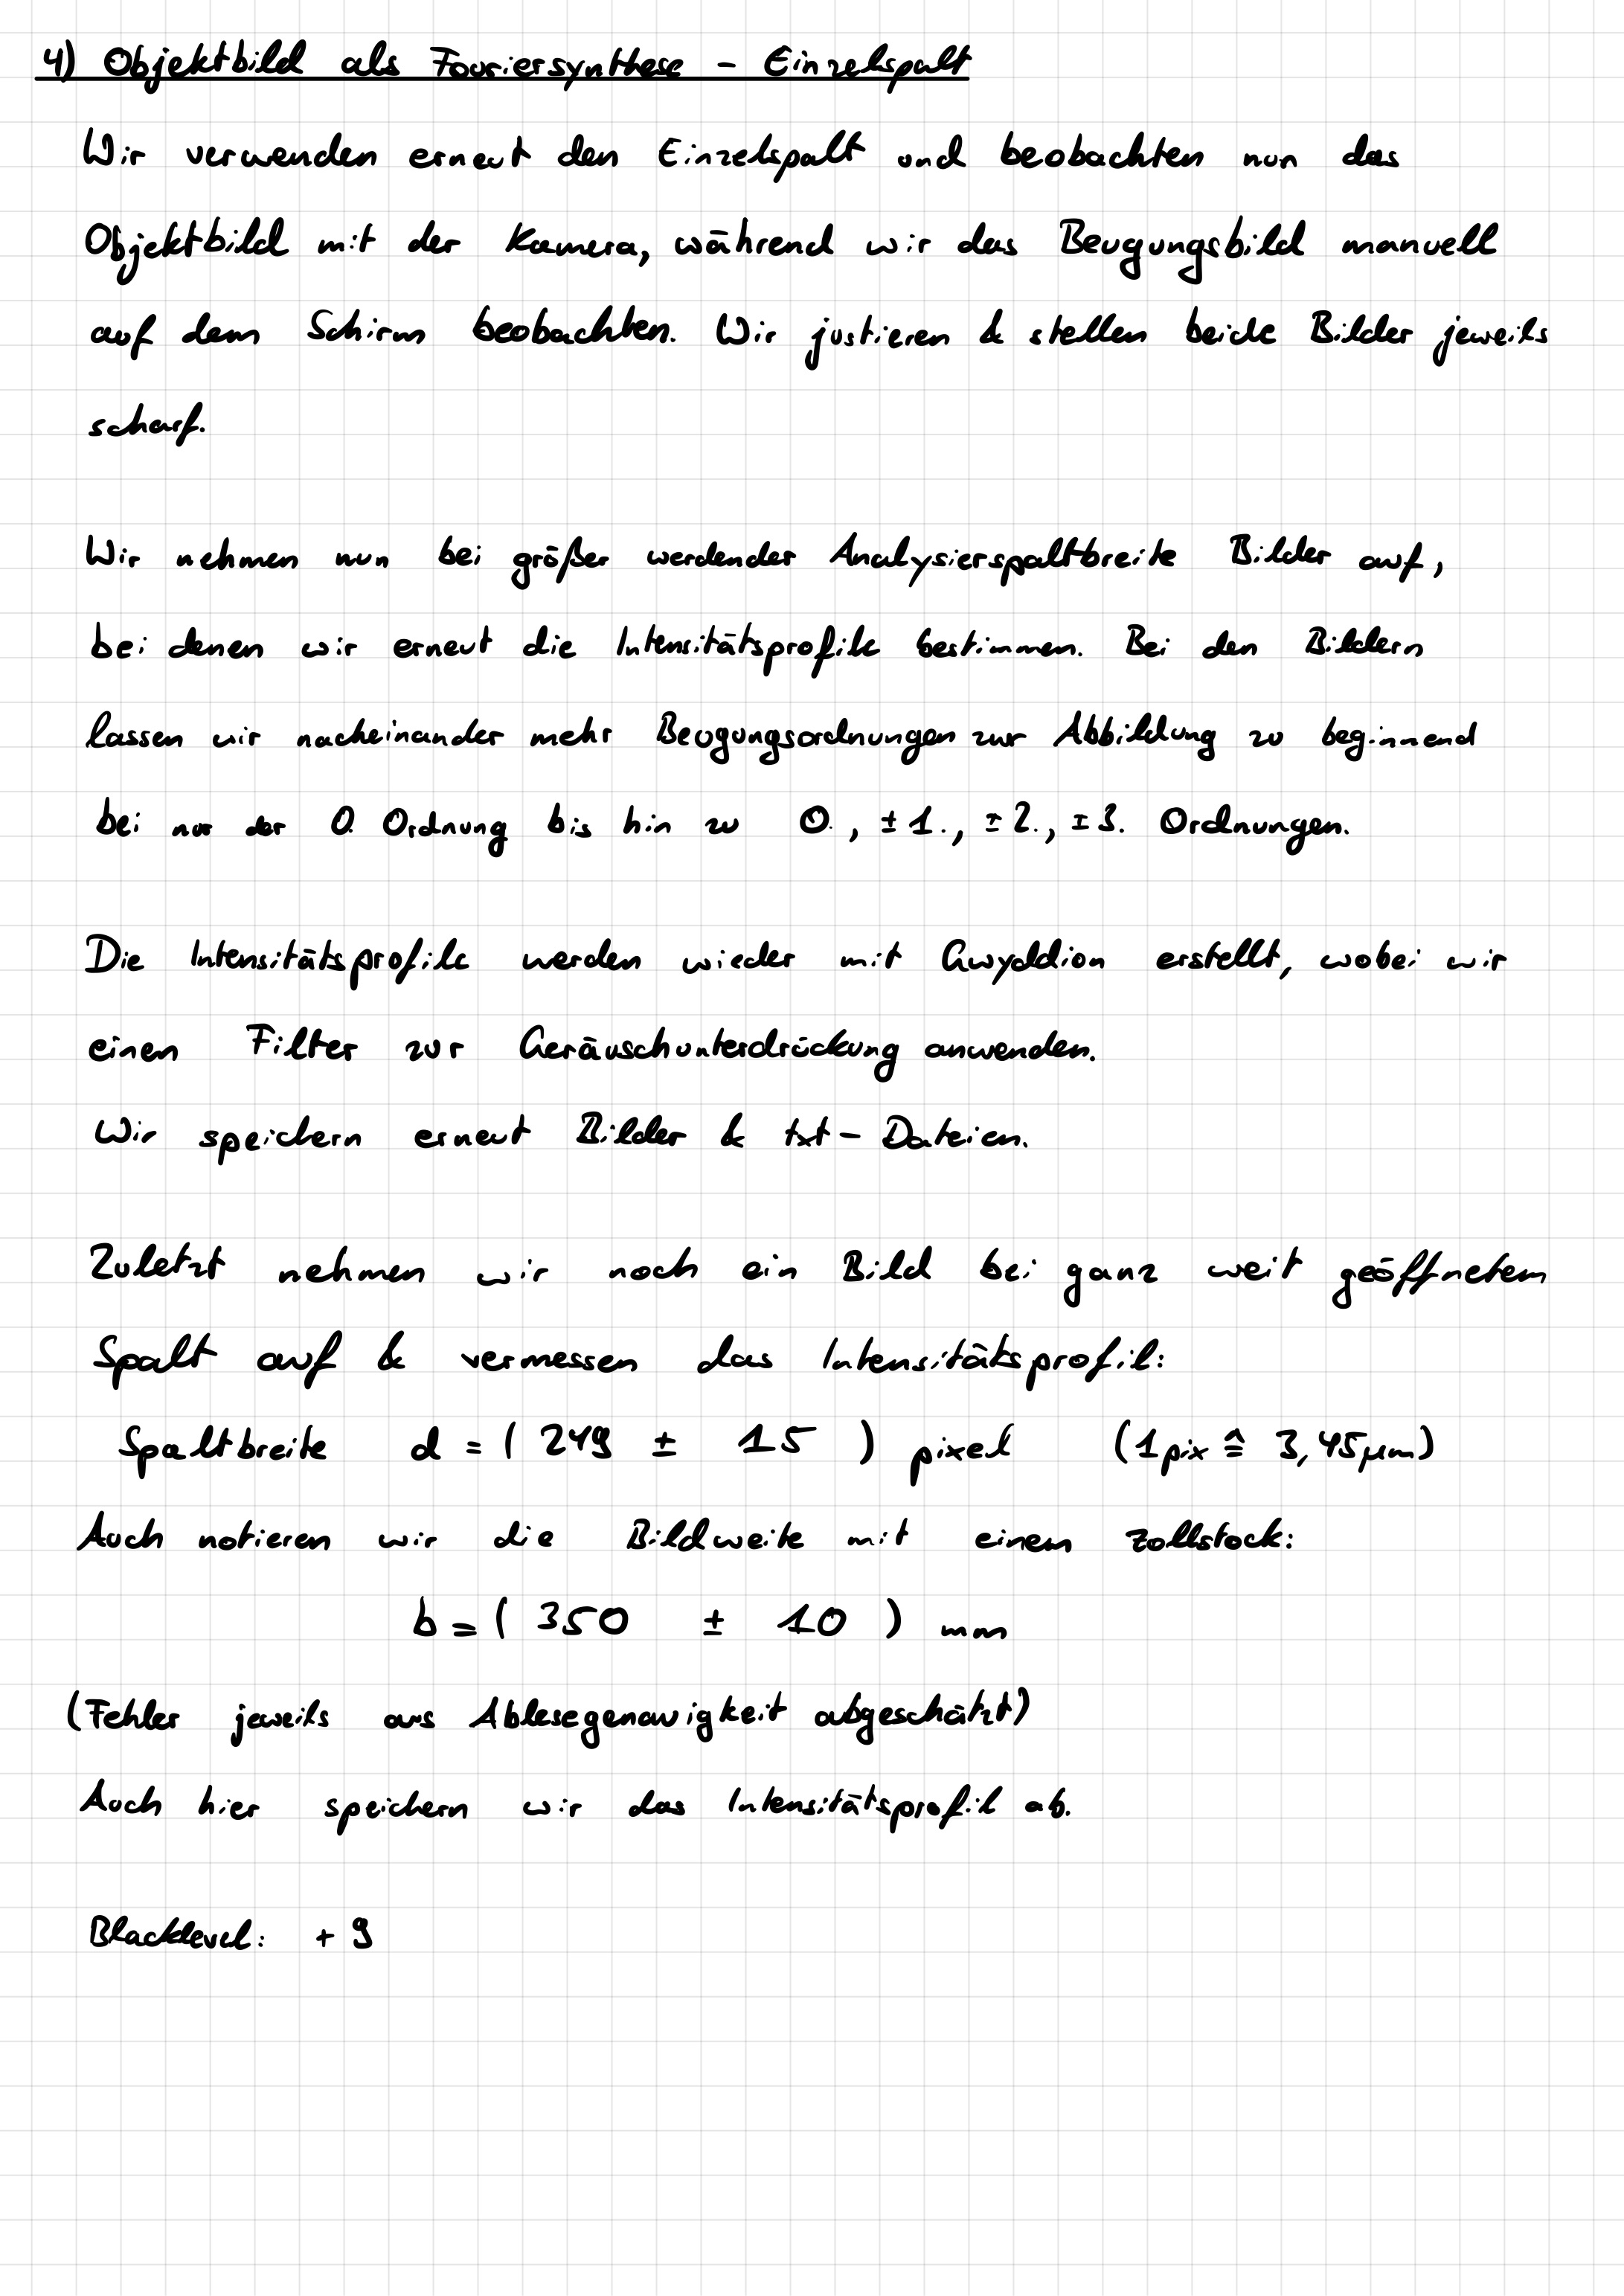 4) Objektbild als Fouriersynthese - Einzelspalt
Wir verwenden erneut den Einzelspalt und beobachten nun das
Objektbild mit der Kamera, während wir das Beugungsbild manuell
auf dem Schirm beobachten. Wir justieren & stellen beide Bilder jeweils
scharf.
Wir nehmen nun bei größer werdender Analysierspaltbreite Bilder auf,
bei denen wir erneut die Intensitätsprofile bestimmen. Bei den Bildern
lassen wir nacheinander mehr Beugungsordnungen zur Abbildung zu beginnend
bei nur der 0. Ordnung bis hin zu 0., ±1., ±2., ±3. Ordnungen.
Die Intensitätsprofile werden wieder mit Gwyddion erstellt, wobei wir
einen Filter zur Geräuschunterdrückung anwenden.
Wir speichern erneut Bilder & txt-Dateien.
Zuletzt nehmen wir noch ein Bild bei ganz weit geöffnetem
Spalt auf & vermessen das Intensitätsprofil:
Spaltbreite d = ( 249 ± 15 ) pixel (1pix ≙ 3,45μm)
Auch notieren wir die Bildweite mit einem Zollstock:
b = ( 350 ± 10 ) mm
(Fehler jeweils aus Ablesegenauigkeit abgeschätzt)
Auch hier speichern wir das Intensitätsprofil ab.
Blacklevel: + 9